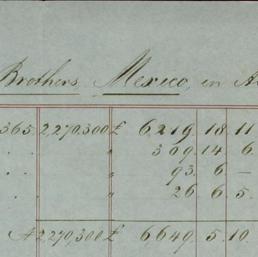 Brothers, Mexico, in A
365 2,270,300 £ 6,219 18 11
. . . " 309 14 6
. . . " 93 6 —
. . . " 26 6 5
2,270,300 £ 6,649 5 10